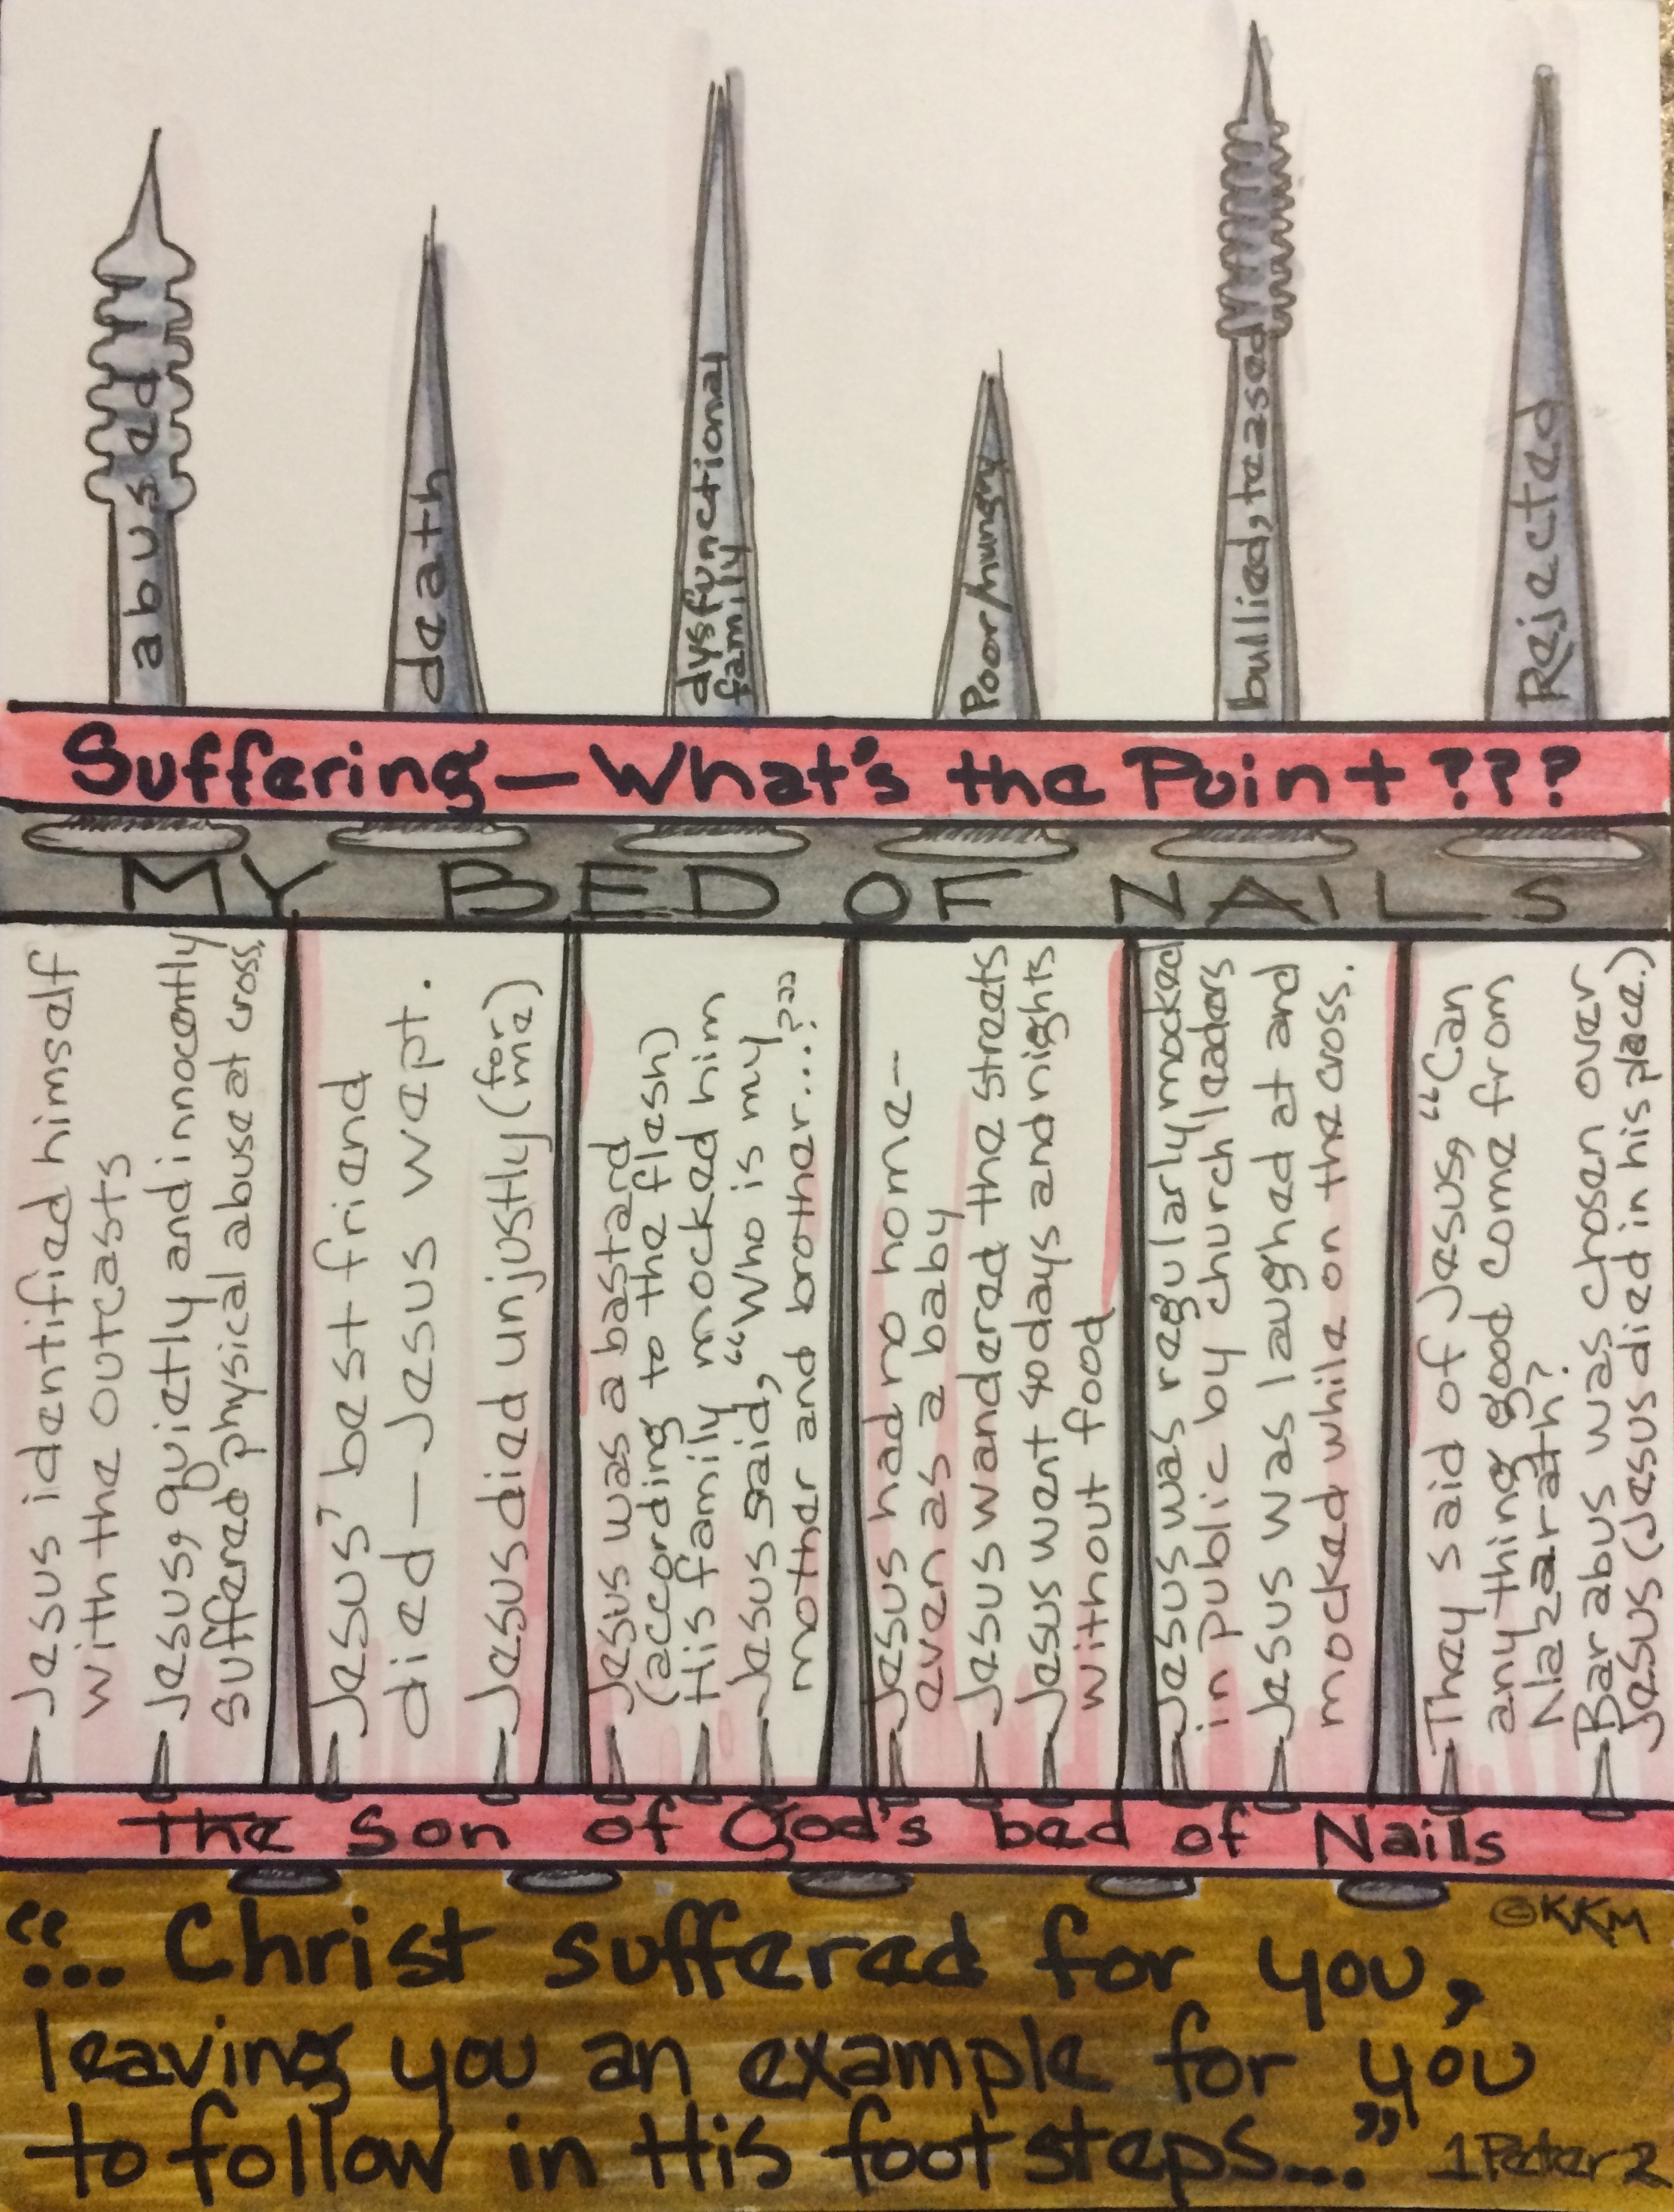 abused
death
dysfunctional
family
Poor/hungry
bullied, teased
Rejected
Suffering—What's the Point???
MY BED OF NAILS
Jesus identified himself
with the outcasts
Jesus, quietly and innocently
suffered physical abuse at cross.
Jesus' best friend
died—Jesus wept.
Jesus died unjustly (for me)
Jesus was a bastard
(according to the flesh)
His family mocked him
Jesus said, "Who is my
mother and brother....???
Jesus had no home—
even as a baby
Jesus wandered the streets
Jesus went 40 days and nights
without food
Jesus was regularly mocked
in public by church leaders
Jesus was laughed at and
mocked while on the cross.
They said of Jesus, "Can
any thing good come from
Nazareth?
Barabus was chosen over
Jesus (Jesus died in his place.)
The Son of God's bed of Nails
©KKM
"... Christ suffered for you,
leaving you an example for you
to follow in His footsteps..." 1 Peter 2